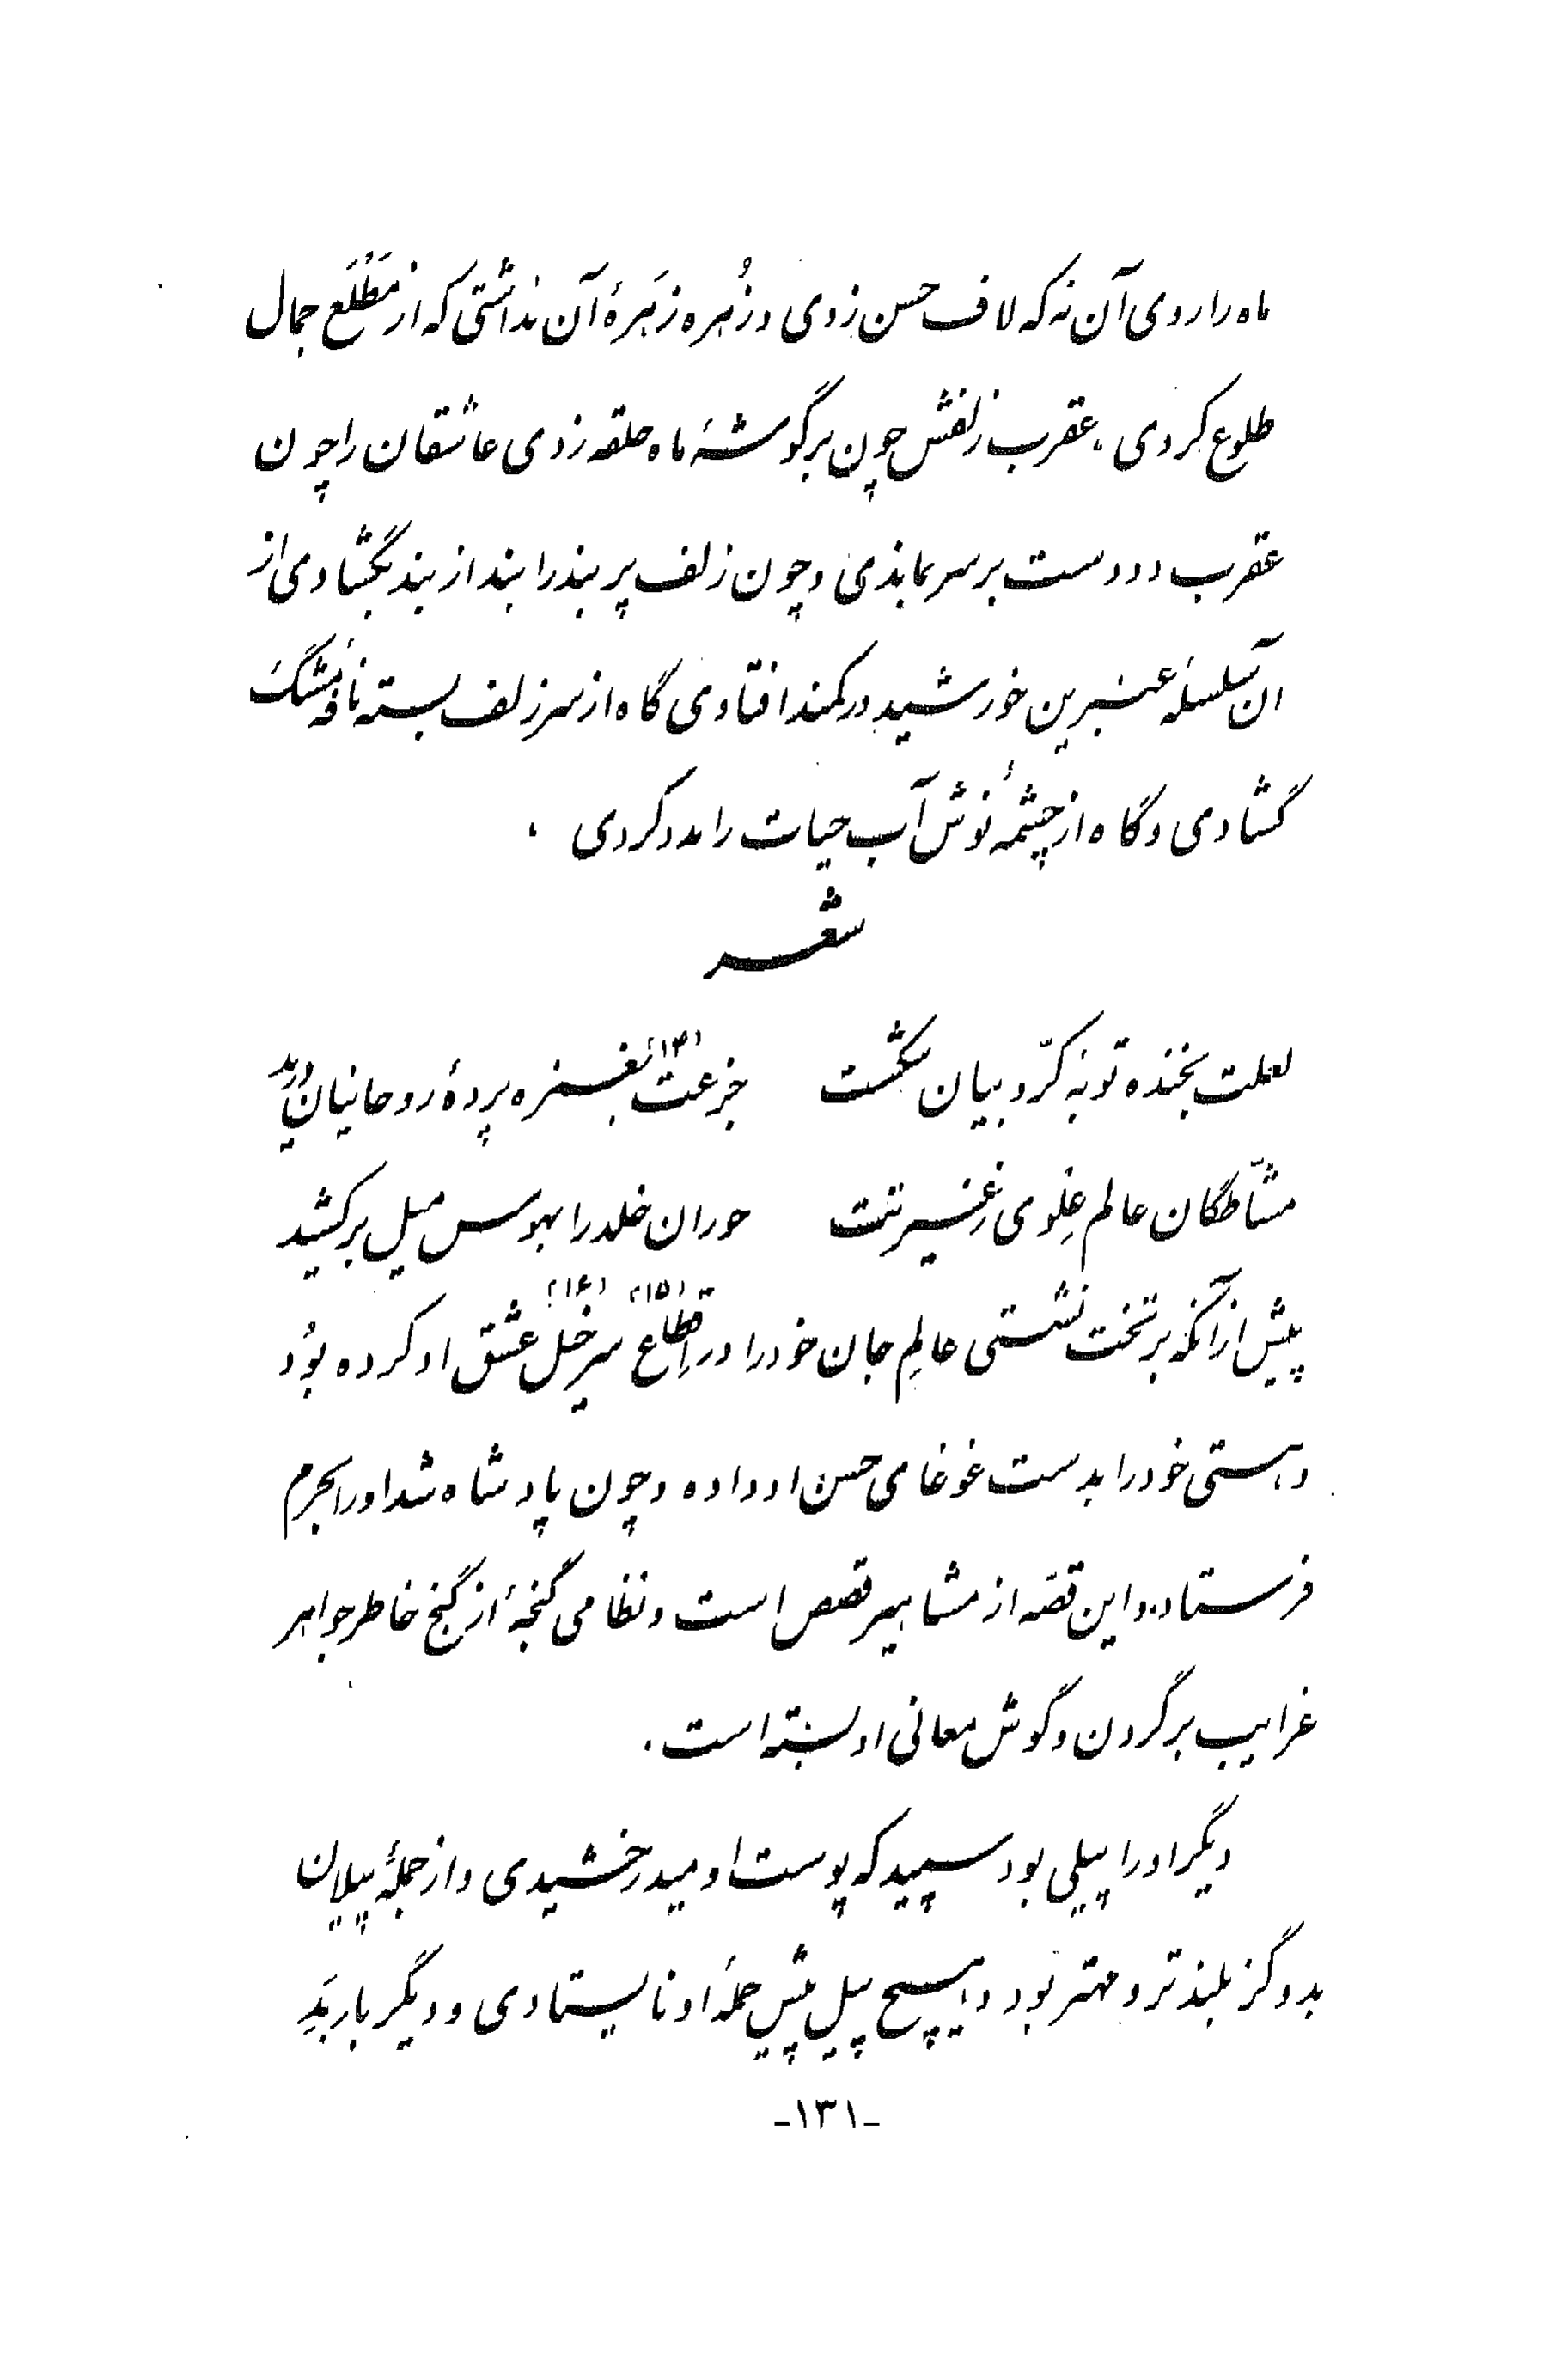 ماه را روی آن نه که لاف حسن زدی و زُهره زَهرهٔ آن نداشتی که از مَطْلَع جمال
طلوع کردی، عقرب زلفش چون بر گوشهٔ ماه حلقه زدی عاشقان را چون
عقرب دو دست بر سر بماندی و چون زلف پر بند را بند از بند بگشادی از
آن سلسلهٔ عنبرین خورشید در کمند افتادی گاه از سر زلف بسته نافهٔ مشگ
گشادی و گاه از چشمهٔ نوش آب حیات را مدد کردی .
شعـــر
لعلت بخنده توبه کرّوبیان شکست جزعت (۱۴) بغمزه پردهٔ روحانیان درید
مشّاطگان عالم عِلوی ز غیرتت حوران خلد را بهوس میل برکشید
پیش از آنکه بر تخت نشستی عالمِ جان خود را در اِقطاع (۱۵) سرخیل (۱۶) عشق او کرده بُود
و هستی خود را بدست غوغای حسن او داده و چون پادشاه شد او را بحرم
فرستاد و این قصّه از مشاهیر قصص است و نظامی گنجهٔ از گنج خاطر جواهر
غرایب بر گردن و گوش معانی او بسته است.
دیگر او را پیلی بود سپید که پوست او میدرخشیدی و از جملهٔ پیلان
بدو گز بلندتر و مهتر بود و هیچ پیل پیش حملهٔ او نایستادی و دیگر باربَدِ
-۱۳۱-